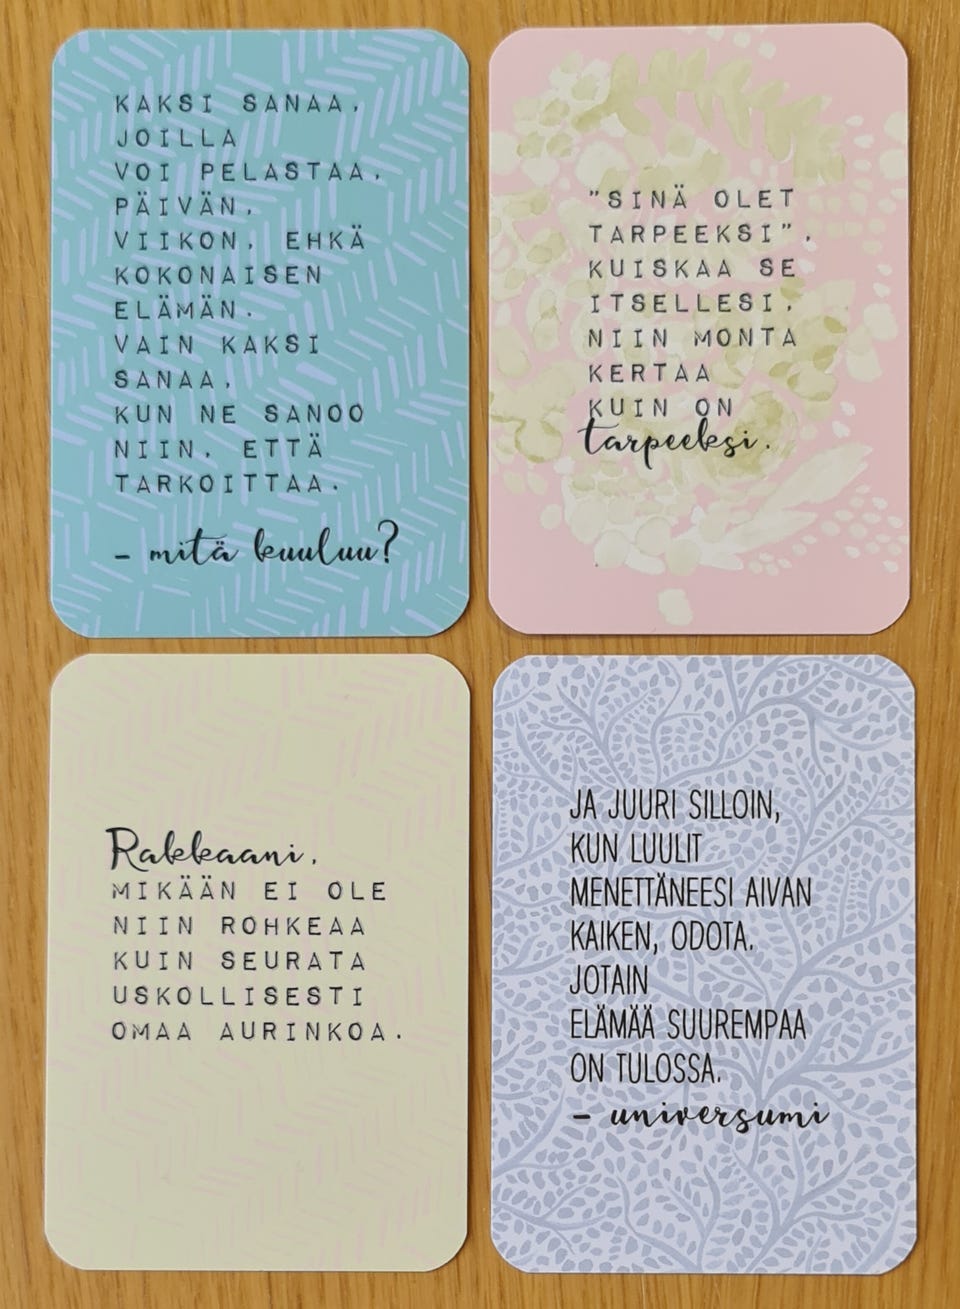 KAKSI SANAA,
JOILLA
VOI PELASTAA,
PÄIVÄN,
VIIKON, EHKÄ
KOKONAISEN
ELÄMÄN.
VAIN KAKSI
SANAA,
KUN NE SANOO
NIIN, ETTÄ
TARKOITTAA.
– mitä kuuluu?
"SINÄ OLET
TARPEEKSI",
KUISKAA SE
ITSELLESI,
NIIN MONTA
KERTAA
KUIN ON
tarpeeksi.
Rakkaani,
MIKÄÄN EI OLE
NIIN ROHKEAA
KUIN SEURATA
USKOLLISESTI
OMAA AURINKOA.
JA JUURI SILLOIN,
KUN LUULIT
MENETTÄNEESI AIVAN
KAIKEN, ODOTA.
JOTAIN
ELÄMÄÄ SUUREMPAA
ON TULOSSA.
– universumi